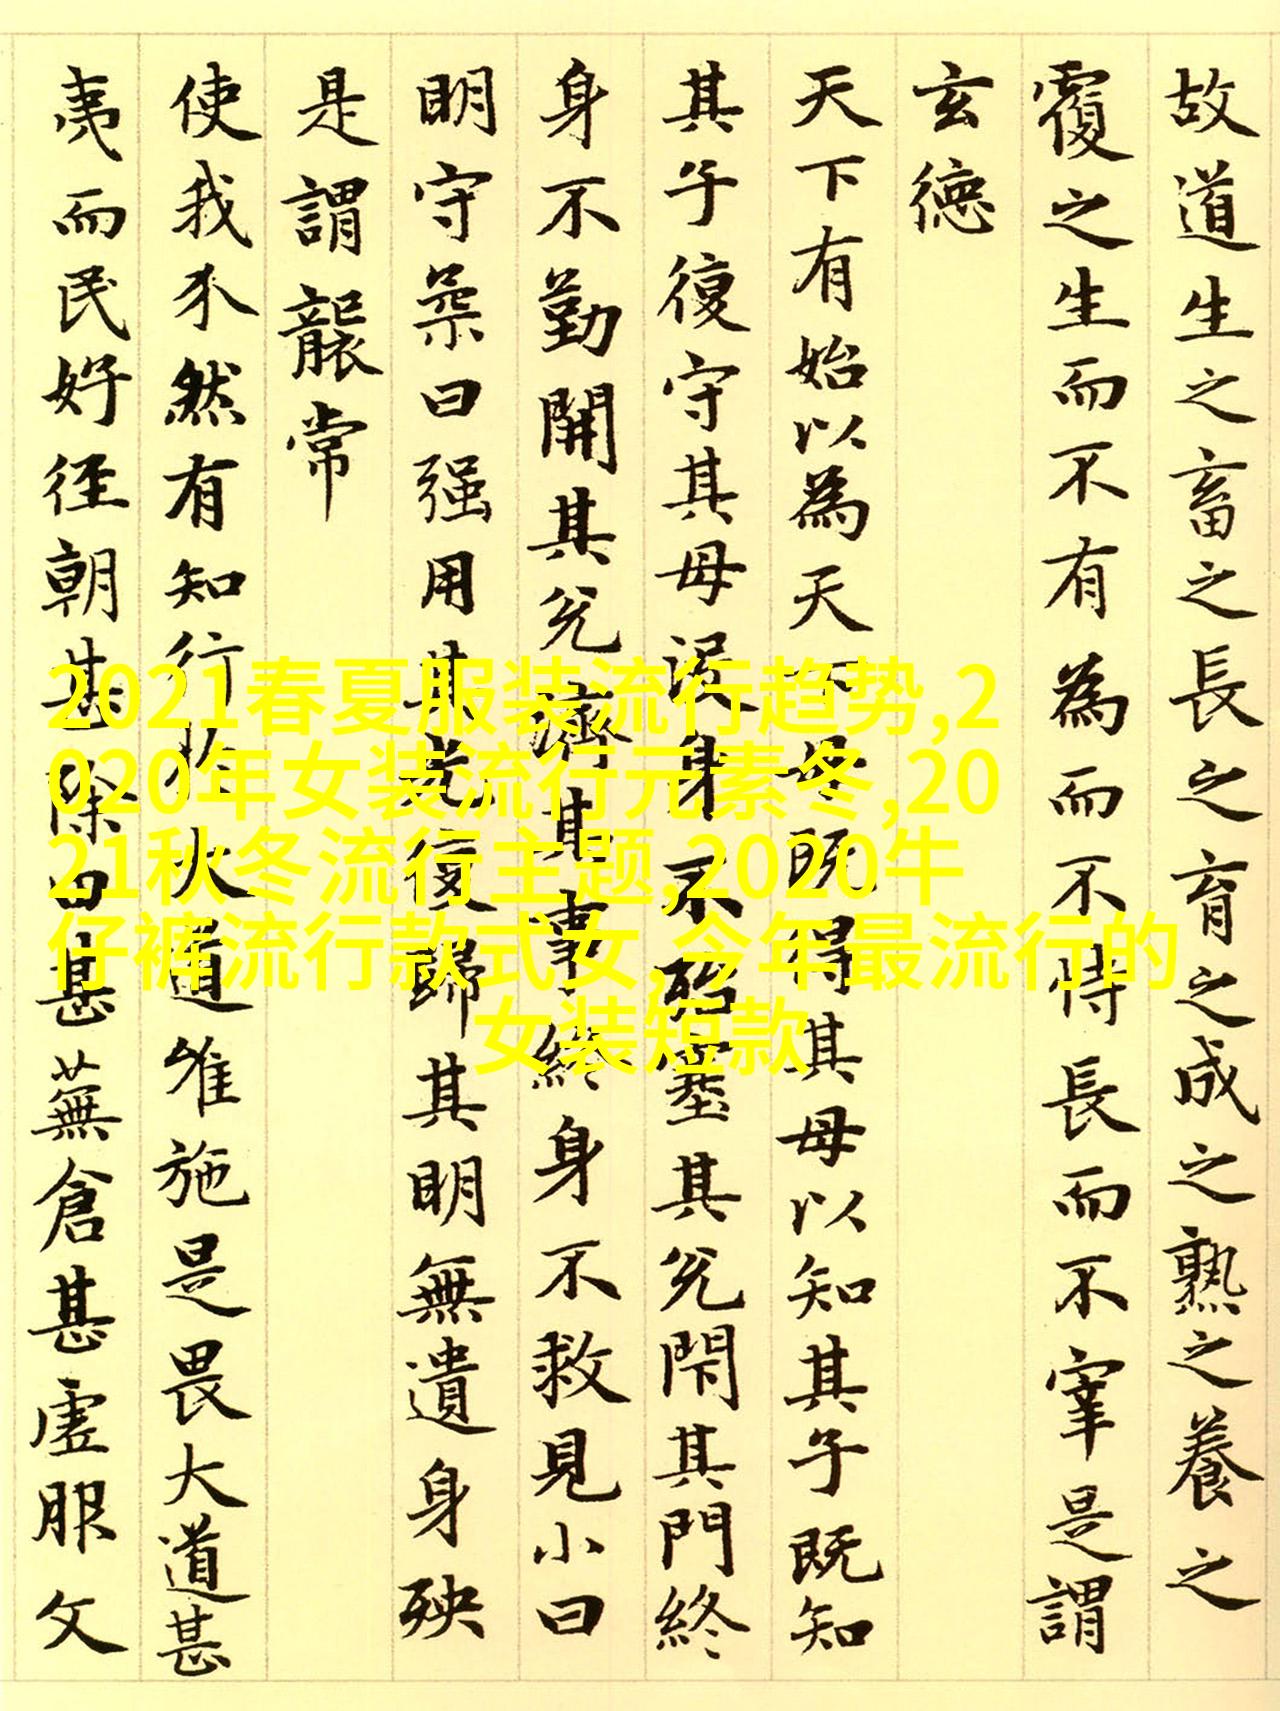 故道生之畜之長之育之成之熟之養之
覆之生而不有為而不恃長而不宰是謂
玄德
天下有始以為天下母既得其母以知其子既知
其子復守其母没身不殆塞其兌閇其門終
身不勤開其兌濟其事終身不救見小曰
明守柔曰强用其光復歸其明無遺身殃
是謂襲常
使我介然有知行於大道唯施是畏大道甚
夷而民好徑朝甚除田甚蕪倉甚虛服文
2021春夏服装流行趋势,2
020年女装流行元素冬,20
21秋冬流行主题,2020牛
仔裤流行款式女,今年最流行的
女装短款